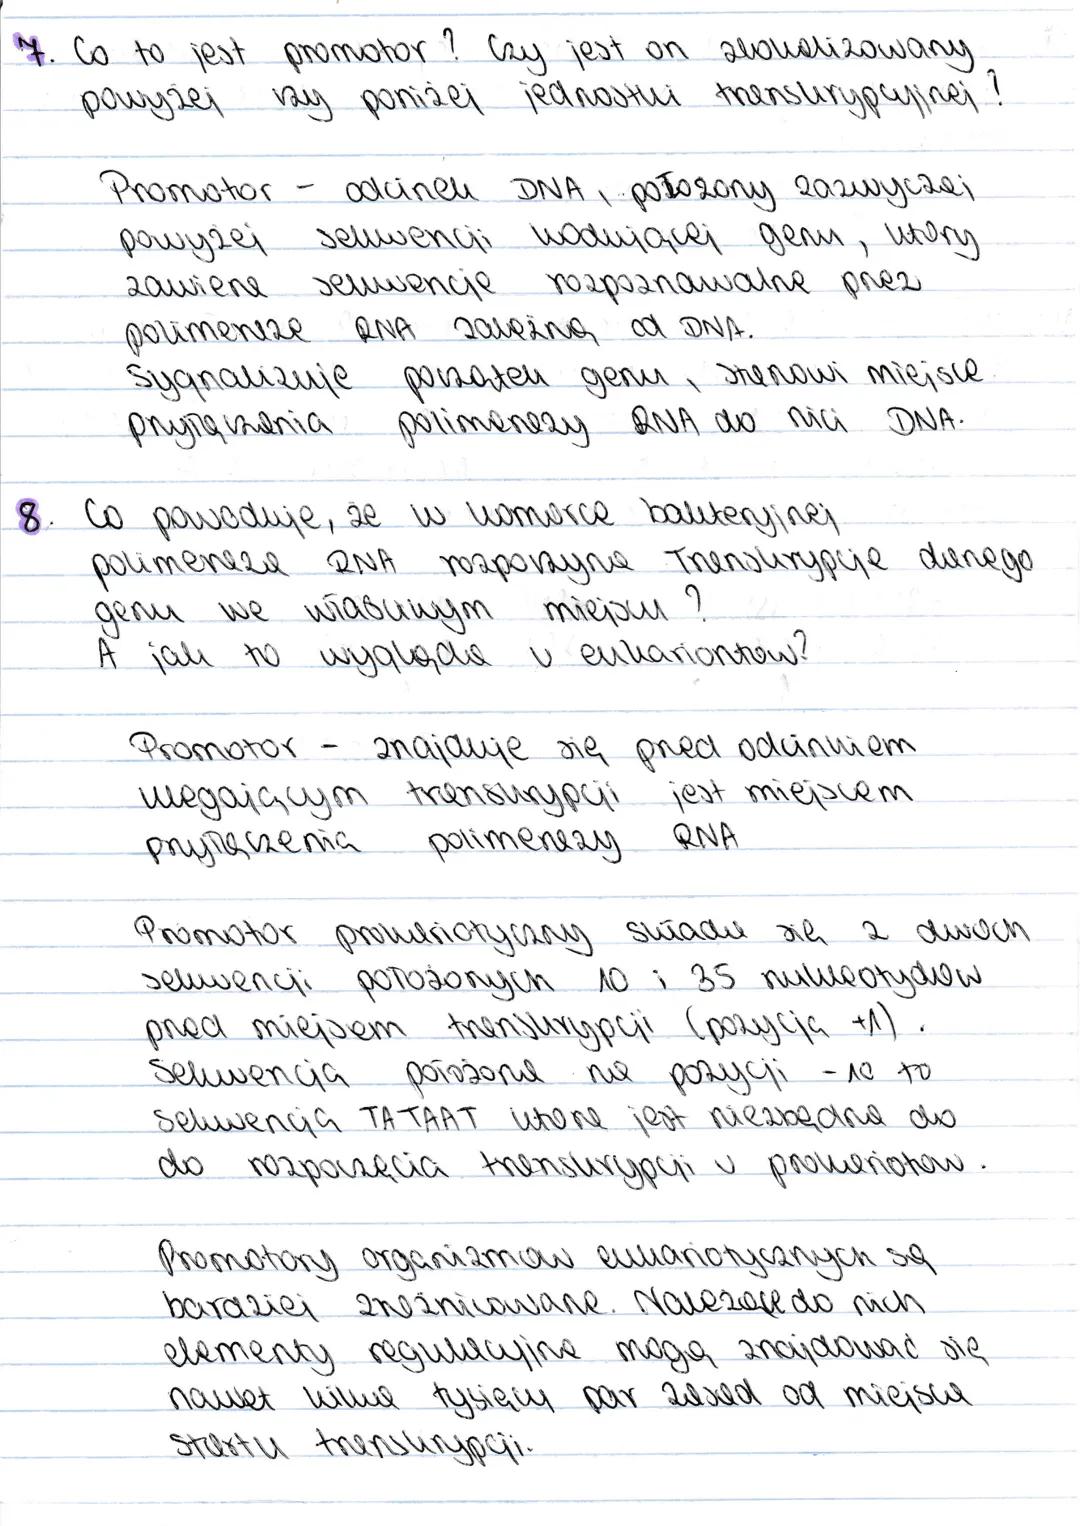 7. Co to jest promotor? Czy jest on zlokalizowany
powyżej czy poniżej jednostki transkrypcyjnej?
Promotor - odcinek DNA, położony zazwyczaj
powyżej sekwencji kodującej genu, który
zawiera sekwencje rozpoznawalne przez
polimerazę RNA zależną od DNA.
Sygnalizuje początek genu, stanowi miejsce
przyłączania polimerazy RNA do nici DNA.
8. Co powoduje, że w komórce bakteryjnej
polimeraza RNA rozpoczyna Transkrypcję danego
genu we właściwym miejscu?
A jak to wygląda u eukariontów?
Promotor - znajduje się przed odcinkiem
ulegającym transkrypcji jest miejscem
przyłączenia polimerazy RNA
Promotor prokariotyczny składa się z dwóch
sekwencji położonych 10 i 35 nukleotydów
przed miejscem transkrypcji (pozycja +1).
Sekwencja położona na pozycji -10 to
sekwencja TATAAT która jest niezbędna do
do rozpoczęcia transkrypcji u prokariotów.
Promotory organizmów eukariotycznych są
bardziej zróżnicowane. Należące do nich
elementy regulacyjne mogą znajdować się
nawet kilka tysięcy par zasad od miejsca
startu transkrypcji.